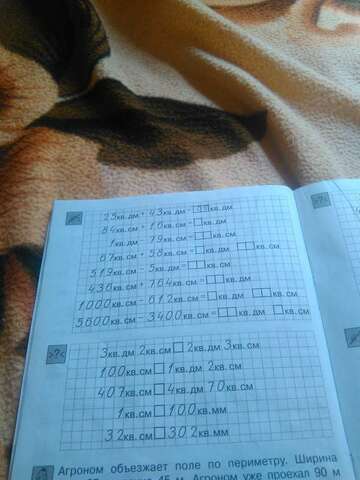 25кв.дм + 43кв.дм = □□кв.дм
84кв.см + 16кв.см = □кв.дм
1кв.дм − 79кв.см = □□кв.см
67кв.см + 58кв.см = □кв.дм □□кв.см
519кв.см − 5кв.дм = □□кв.см
436кв.см + 764кв.см = □□кв.дм
1000кв.см − 612кв.см = □кв.дм □□кв.см
5600кв.см − 3400кв.см = □□кв.дм □кв.см
>?<
3кв.дм 2кв.см □ 2кв.дм 3кв.см
100кв.см □ 1кв.дм 2кв.см
407кв.см □ 4кв.дм 70кв.см
1кв.см □ 100кв.мм
32кв.см □ 302кв.мм
Агроном объезжает поле по периметру. Ширина
Агроном уже проехал 90 м